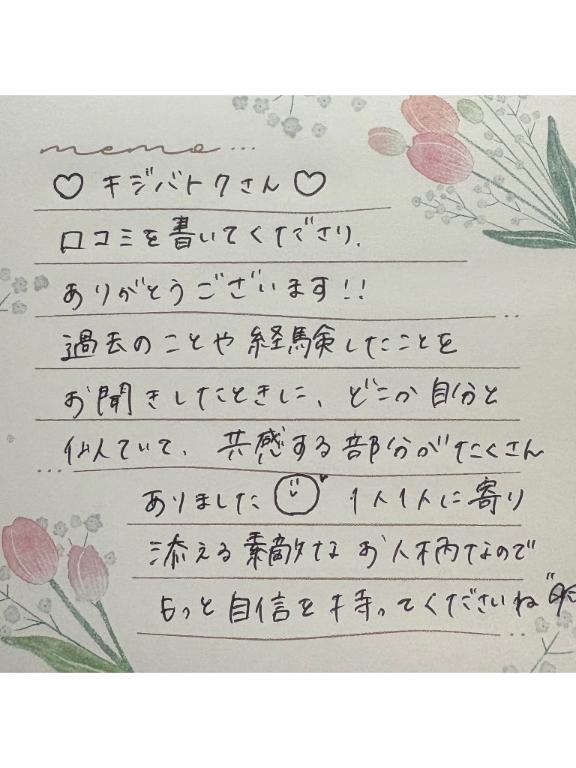 memo...
♡ キジバトクさん ♡
口コミを書いてくださり、
ありがとうございます!!
過去のことや経験したことを
お聞きしたときに、どこか自分と
似ていて、共感する部分がたくさん
ありました 1人1人に寄り
添える素敵なお人柄なので
もっと自信を持ってくださいね